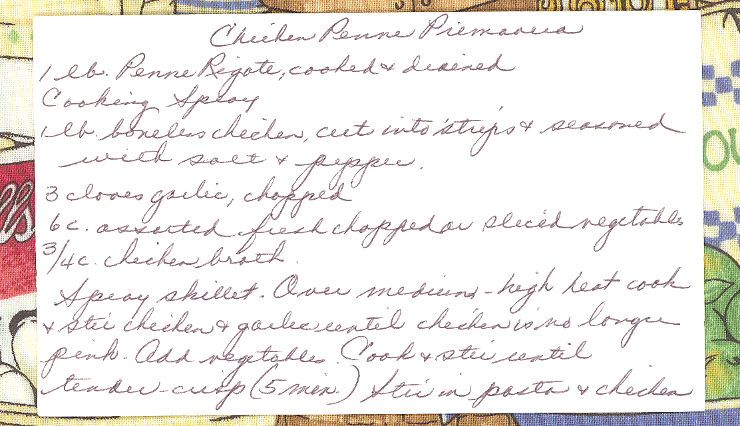 Chicken Penne Primavera
1 lb. Penne Rigate, cooked & drained
Cooking Spray
1 lb. boneless chicken, cut into strips & seasoned
with salt & pepper.
3 cloves garlic, chopped
6 c. assorted fresh chopped or sliced vegetables
3/4 c. chicken broth.
Spray skillet. Over medium-high heat cook
& stir chicken & garlic until chicken is no longer
pink. Add vegetables. Cook & stir until
tender-crisp (5 min.) Stir in pasta & chicken